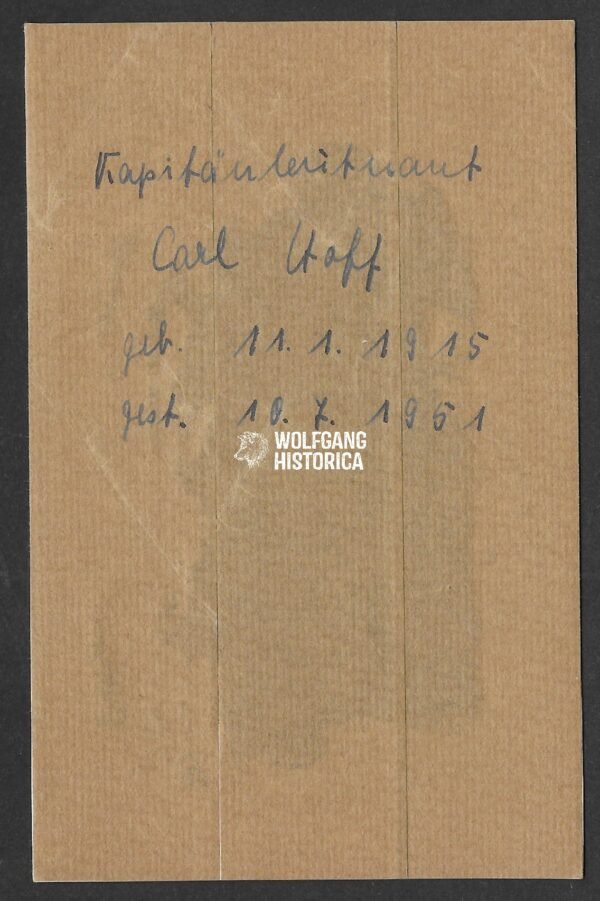 Kapitänleutnant
Carl Hoff
geb. 11. 1. 1915
gest. 10. 7. 1951
WOLFGANG
HISTORICA